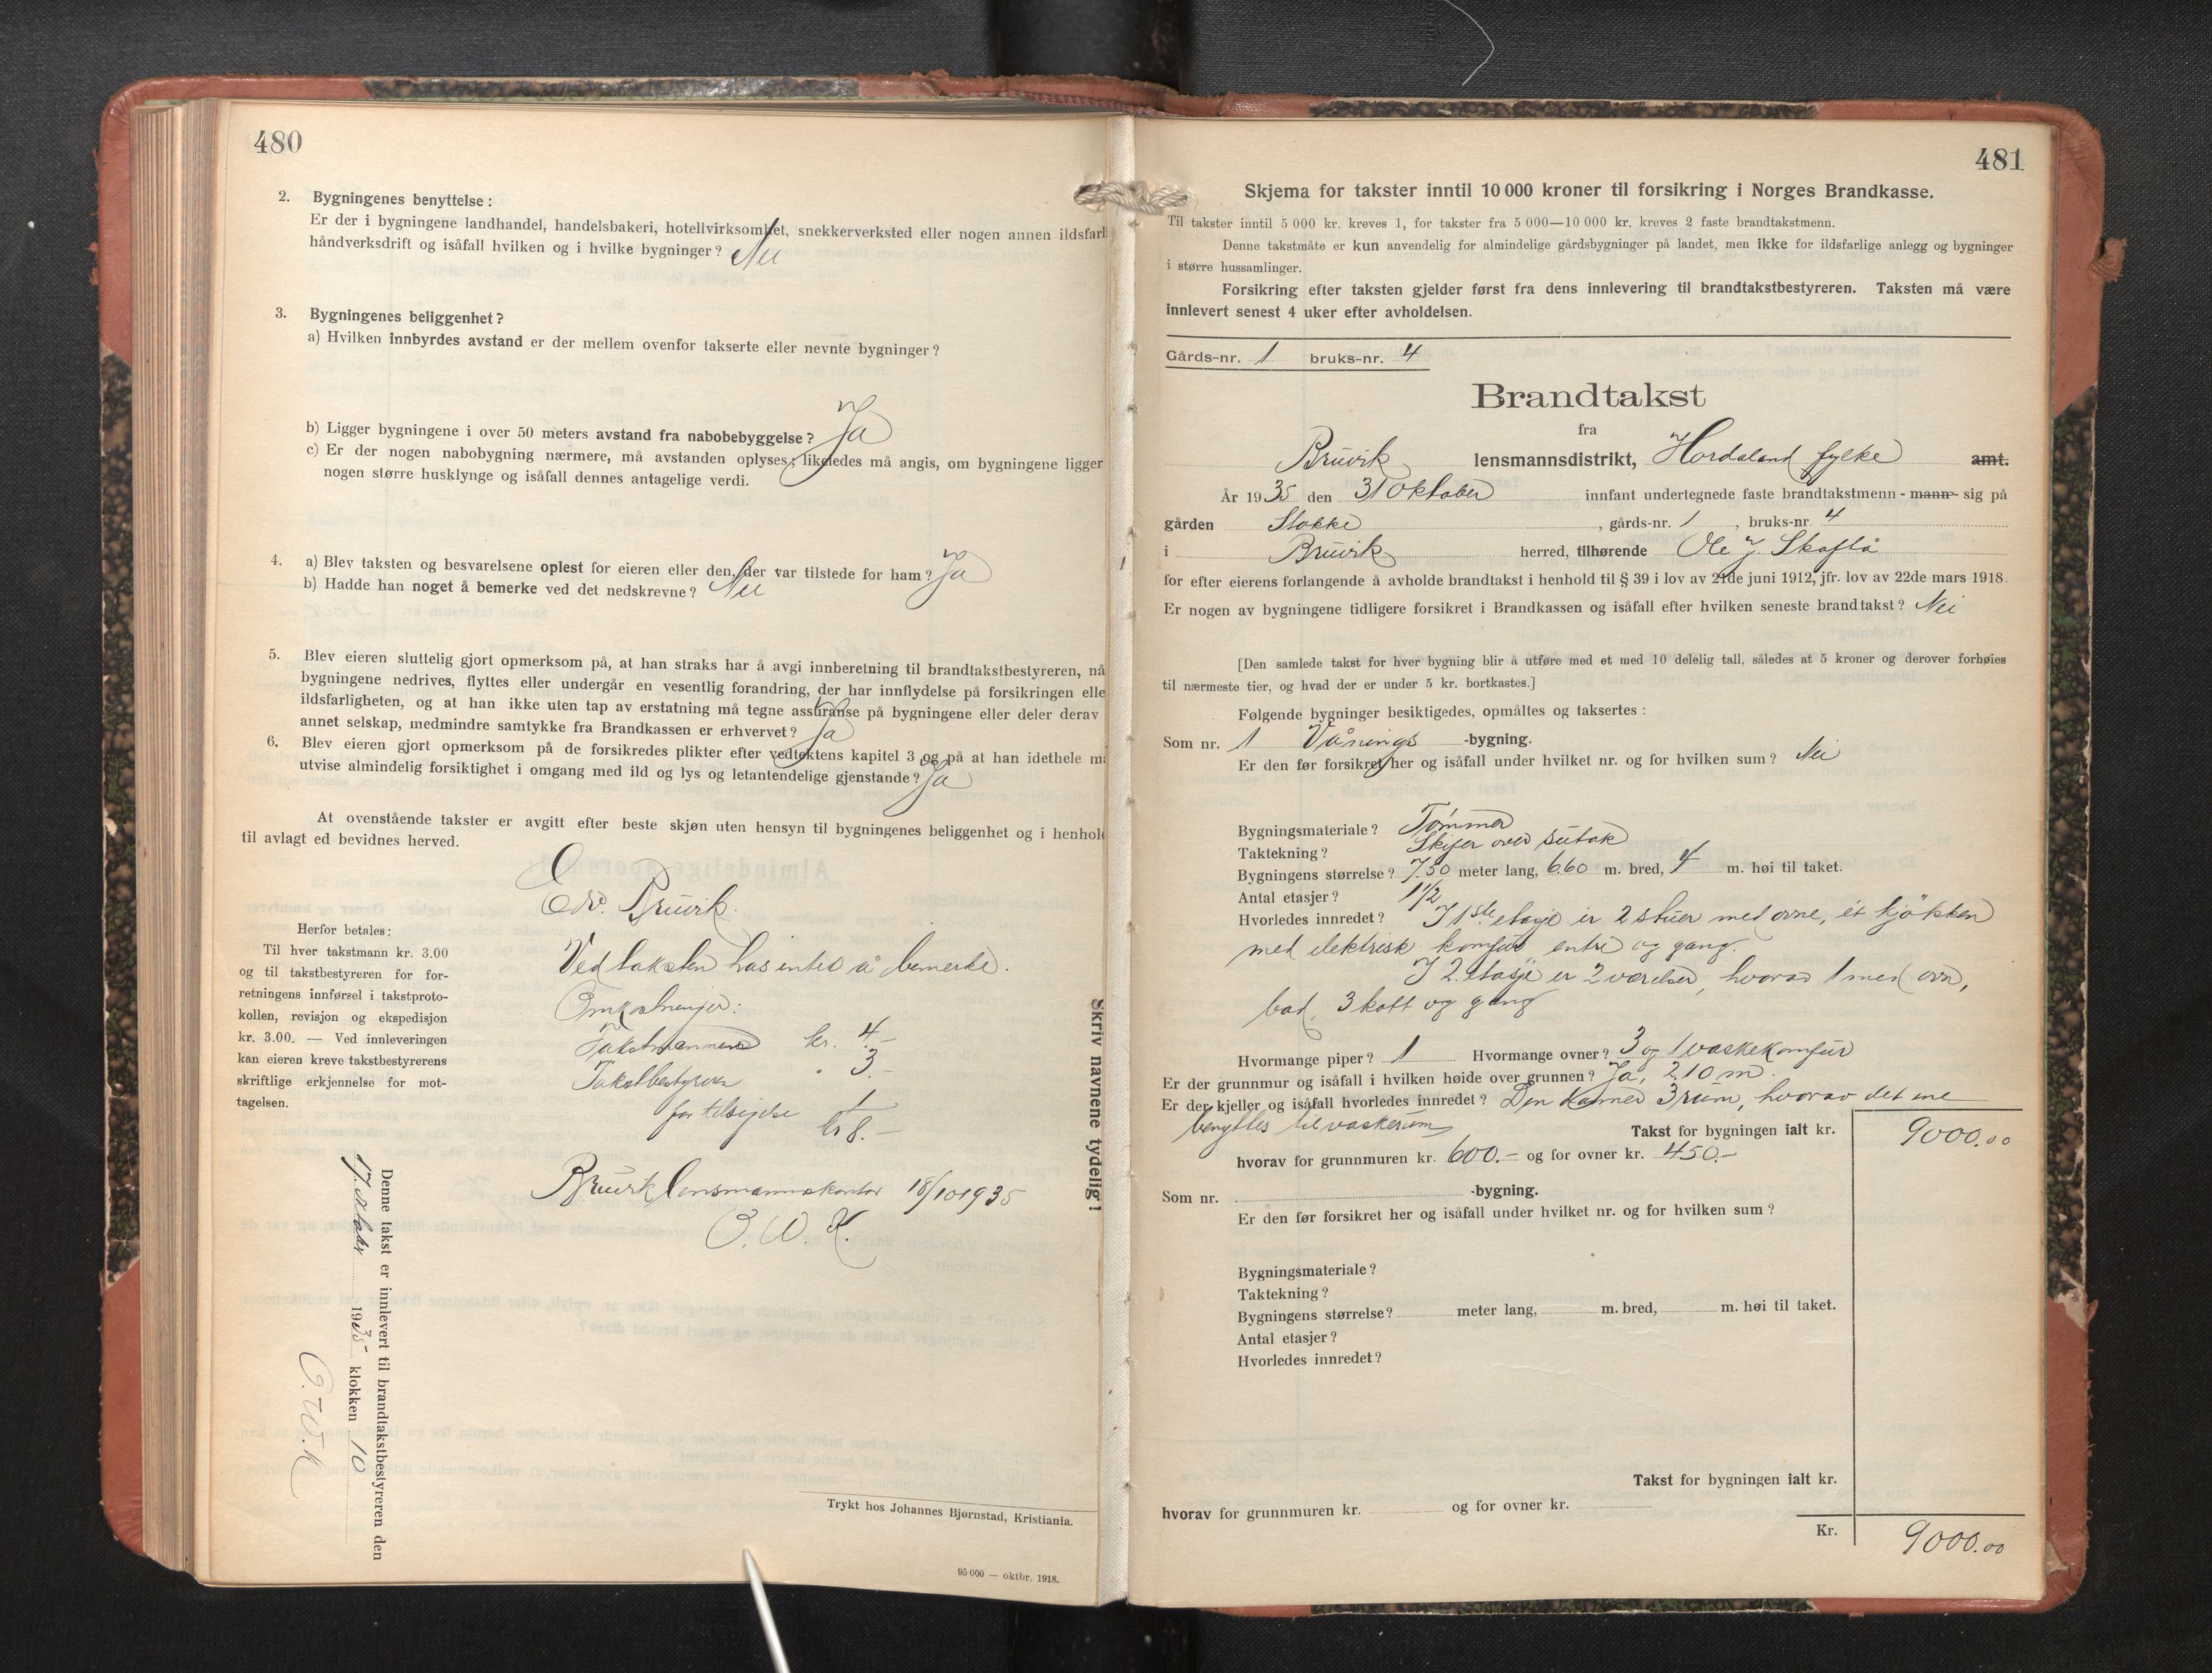 480
2. Bygningenes benyttelse:
Er der i bygningene landhandel, handelsbakeri, hotellvirksomhet, snekkerverksted eller nogen annen ildsfarli
håndverksdrift og isåfall hvilken og i hvilke bygninger? Nei
3. Bygningenes beliggenhet?
a) Hvilken innbyrdes avstand er der mellem ovenfor takserte eller nevnte bygninger?
b) Ligger bygningene i over 50 meters avstand fra nabobebyggelse? Ja
c) Er der nogen nabobygning nærmere, må avstanden oplyses; likeledes må angis, om bygningene ligger
nogen større husklynge og isåfall dennes antagelige verdi.
4. a) Blev taksten og besvarelsene oplest for eieren eller den, der var tilstede for ham? Ja
b) Hadde han noget å bemerke ved det nedskrevne? Nei
5. Blev eieren sluttelig gjort opmerksom på, at han straks har å avgi innberetning til brandtakstbestyreren, nå
bygningene nedrives, flyttes eller undergår en vesentlig forandring, der har innflydelse på forsikringen elle
ildsfarligheten, og at han ikke uten tap av erstatning må tegne assuranse på bygningene eller deler derav
annet selskap, medmindre samtykke fra Brandkassen er erhvervet? Ja
6. Blev eieren gjort opmerksom på de forsikredes plikter efter vedtektens kapitel 3 og på at han idethele må
utvise almindelig forsiktighet i omgang med ild og lys og letantendelige gjenstande? Ja
At ovenstående takster er avgitt efter beste skjøn uten hensyn til bygningenes beliggenhet og i henhold
til avlagt ed bevidnes herved.
Edv. Bruvik.
Herfor betales:
Til hver takstmann kr. 3.00
og til takstbestyreren for for-
retningens innførsel i takstproto-
kollen, revisjon og ekspedisjon
kr. 3.00. — Ved innleveringen
kan eieren kreve takstbestyrerens
skriftlige erkjennelse for mot-
tagelsen.
Ved taksten has intet å bemerke.
Omkostninger:
Takstmannen kr. 4.-
Takstbestyreren " 3.-
for tilsigelse 1
kr 8.-
Bruvik lensmannskontor 18/10 1935
O. W. K.
Denne takst er innlevert til brandtakstbestyreren den
17. oktober 1935 klokken 10
O. W. K
Skriv navnene tydelig!
Trykt hos Johannes Bjørnstad, Kristiania.
95 000 — oktbr. 1918.
481
Skjema for takster inntil 10 000 kroner til forsikring i Norges Brandkasse.
Til takster inntil 5 000 kr. kreves 1, for takster fra 5 000—10 000 kr. kreves 2 faste brandtakstmenn.
Denne takstmåte er kun anvendelig for almindelige gårdsbygninger på landet, men ikke for ildsfarlige anlegg og bygninger
i større hussamlinger.
Forsikring efter taksten gjelder først fra dens innlevering til brandtakstbestyreren. Taksten må være
innlevert senest 4 uker efter avholdelsen.
Gårds-nr. 1 bruks-nr. 4
Brandtakst
fra
Bruvik lensmannsdistrikt, Hordaland fylke amt.
År 1935 den 31 Oktober innfant undertegnede faste brandtakstmenn - mann- sig på
gården Stokke, gårds-nr. 1, bruks-nr. 4
i Bruvik herred, tilhørende Ole J. Skaftå
for efter eierens forlangende å avholde brandtakst i henhold til § 39 i lov av 21de juni 1912, jfr. lov av 22de mars 1918
Er nogen av bygningene tidligere forsikret i Brandkassen og isåfall efter hvilken seneste brandtakst? Nei
[Den samlede takst for hver bygning blir å utføre med et med 10 delelig tall, således at 5 kroner og derover forhøies
til nærmeste tier, og hvad der er under 5 kr. bortkastes.]
Følgende bygninger besiktigedes, opmåltes og taksertes:
Som nr. 1 Vånings -bygning.
Er den før forsikret her og isåfall under hvilket nr. og for hvilken sum? Nei
Bygningsmateriale? Tømmer
Taktekning? Skifer over sutak
Bygningens størrelse? 7.50 meter lang, 6.60 m. bred, 4 m. høi til taket.
Antal etasjer? 1 1/2
Hvorledes innredet? I 1ste etasje er 2 stuer med ovne, et kjøkken
med elektrisk komfur entre og gang.
I 2. etasje er 2 værelser, hvorav 1 med ovn,
bad, 3 kott og gang
Hvormange piper? 1 Hvormange ovner? 3 og 1 vaskekomfur
Er der grunnmur og isåfall i hvilken høide over grunnen? Ja, 2.10 m.
Er der kjeller og isåfall hvorledes innredet? Den danner 3 rum, hvorav det ene
benyttes til vaskerum
Takst for bygningen ialt kr. 9000.00
hvorav for grunnmuren kr. 600.- og for ovner kr. 450.-
Som nr. -bygning.
Er den før forsikret her og isåfall under hvilket nr. og for hvilken sum?
Bygningsmateriale?
Taktekning?
Bygningens størrelse? meter lang, m. bred, m. høi til taket.
Antal etasjer?
Hvorledes innredet?
Takst for bygningen ialt kr.
hvorav for grunnmuren kr. og for ovner kr.
Kr. 9000.00